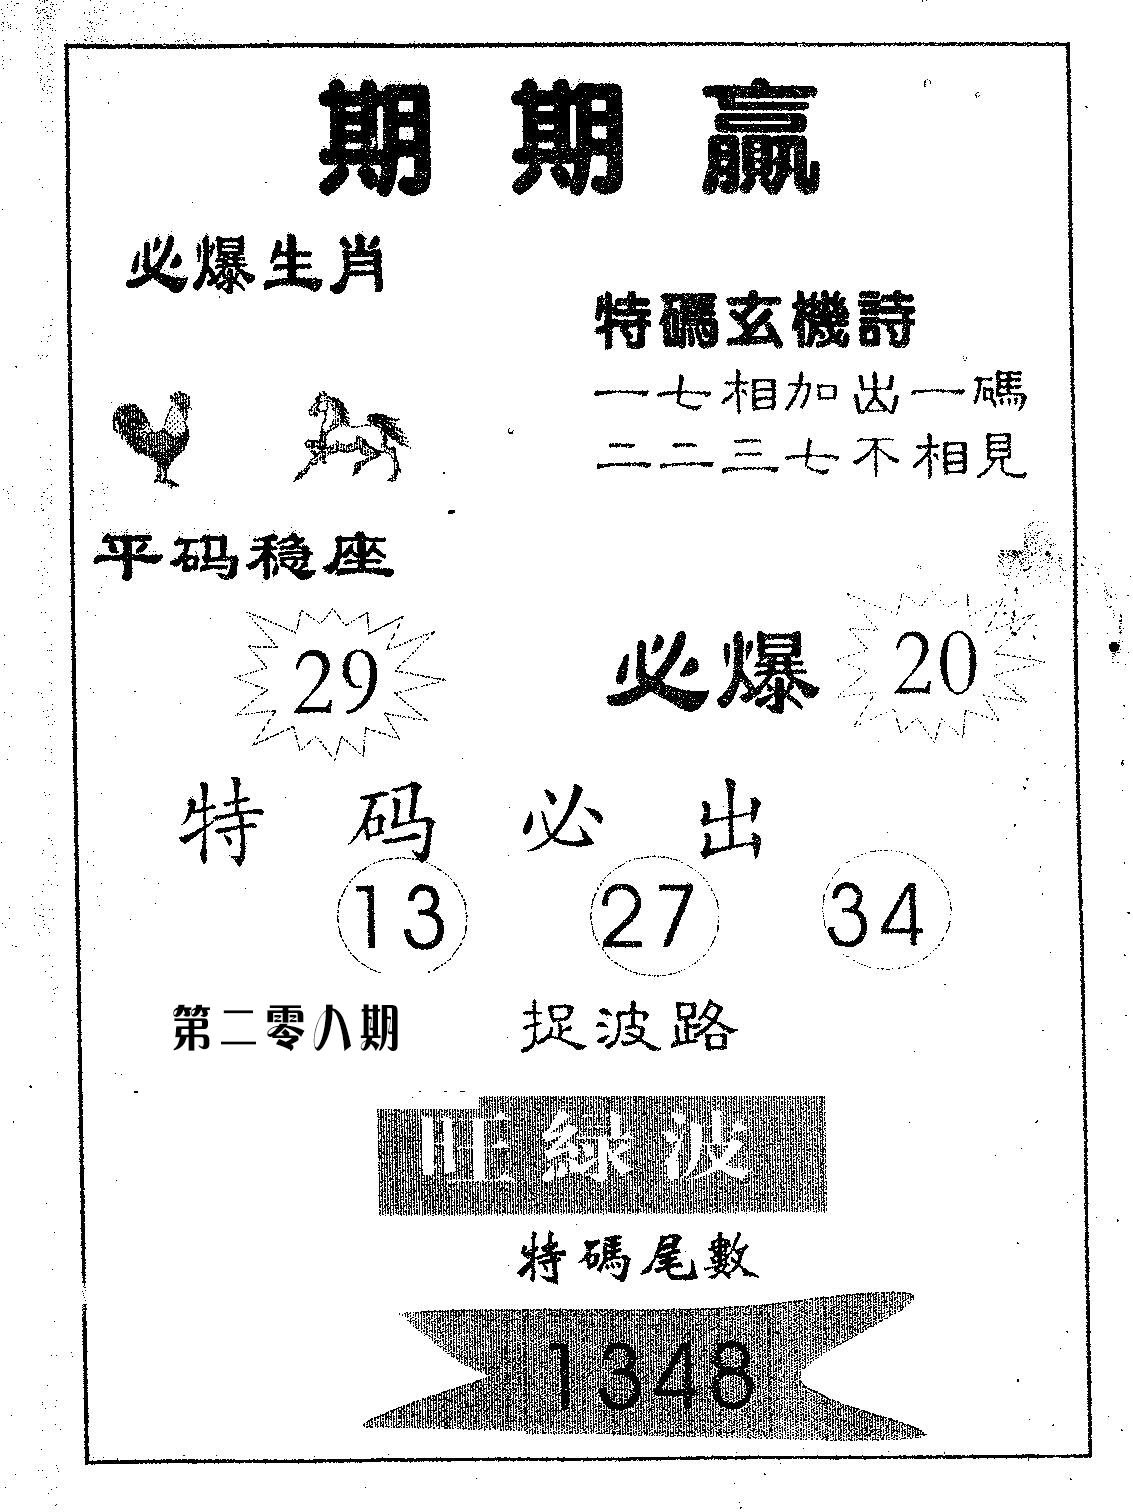 期期贏
必爆生肖
特碼玄機詩
一七相加出一碼
二二三七不相見
平码稳座
29
必爆 20
特码必出
13 27 34
第二零八期
捉波路
旺綠波
特碼尾數
1348